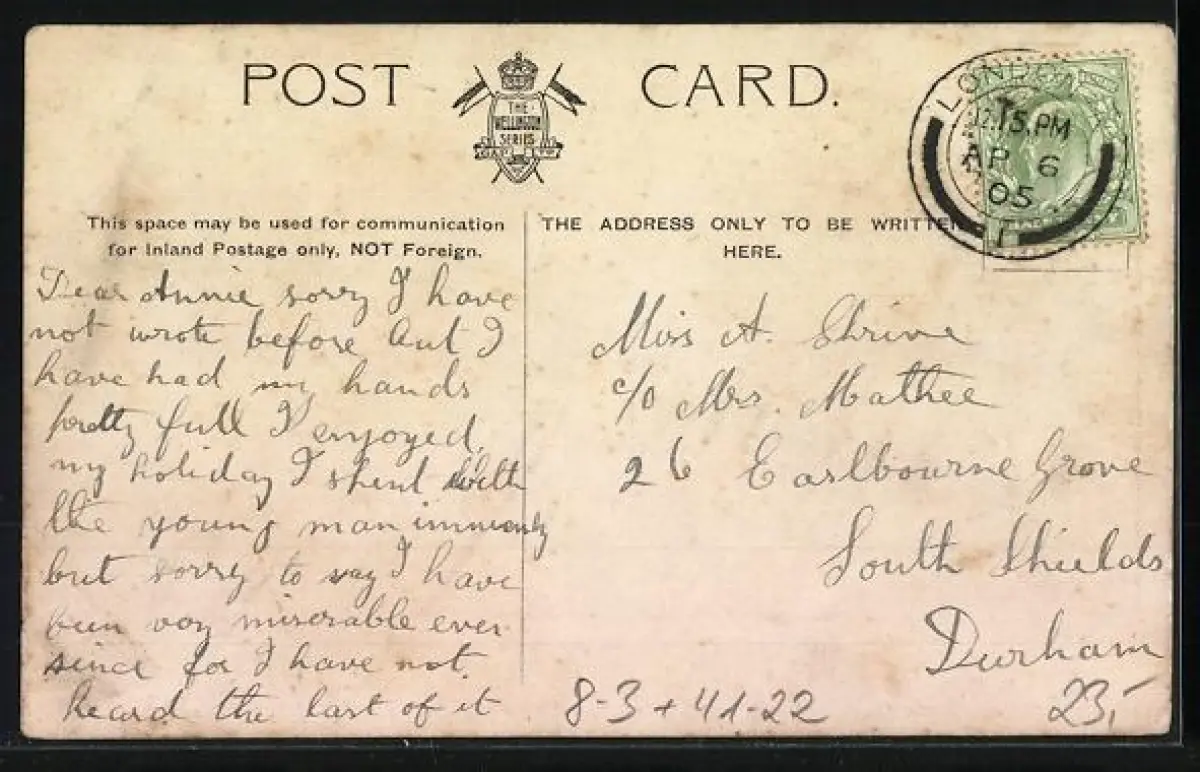 POST CARD.
THE
WELLINGTON
SERIES
LONDON
12.15.PM
AP 6
05
This space may be used for communication
for Inland Postage only, NOT Foreign.
THE ADDRESS ONLY TO BE WRITTEN
HERE.
Dear Annie sorry I have
not wrote before but I
have had my hands
pretty full I enjoyed
my holiday I spent with
the young man immensely
but sorry to say I have
been very miserable ever
since for I have not
heard the last of it
Miss A. Shrive
c/o Mrs. Mathee
26 Grove
South Shields
Durham
8-3+41-22
23,-